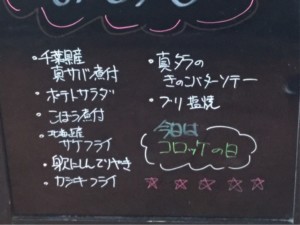 ・千葉県産
真サバ煮付
・ポテトサラダ
・ごぼう煮付
・北海道産
サケフライ
・カジキフライ
・真タラの
きのこバターソテー
・ブリ塩焼
今日は
コロッケの日